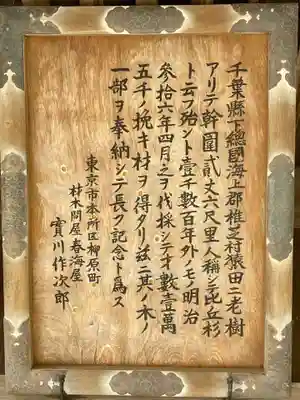 千葉縣下總國海上郡椎芝村猿田ニ老樹
アリテ幹圍貳丈六尺里人稱シテ比丘杉
ト云フ殆ント壹千數百年外ノモノ明治
参拾六年四月之ヲ伐採シテ才數壹萬
五千ノ挽キ材ヲ得タリ玆ニ其ノ木ノ
一部ヲ奉納シテ長ク記念ト爲ス
東京市本所区柳原町
材木問屋春海屋
實川作次郎